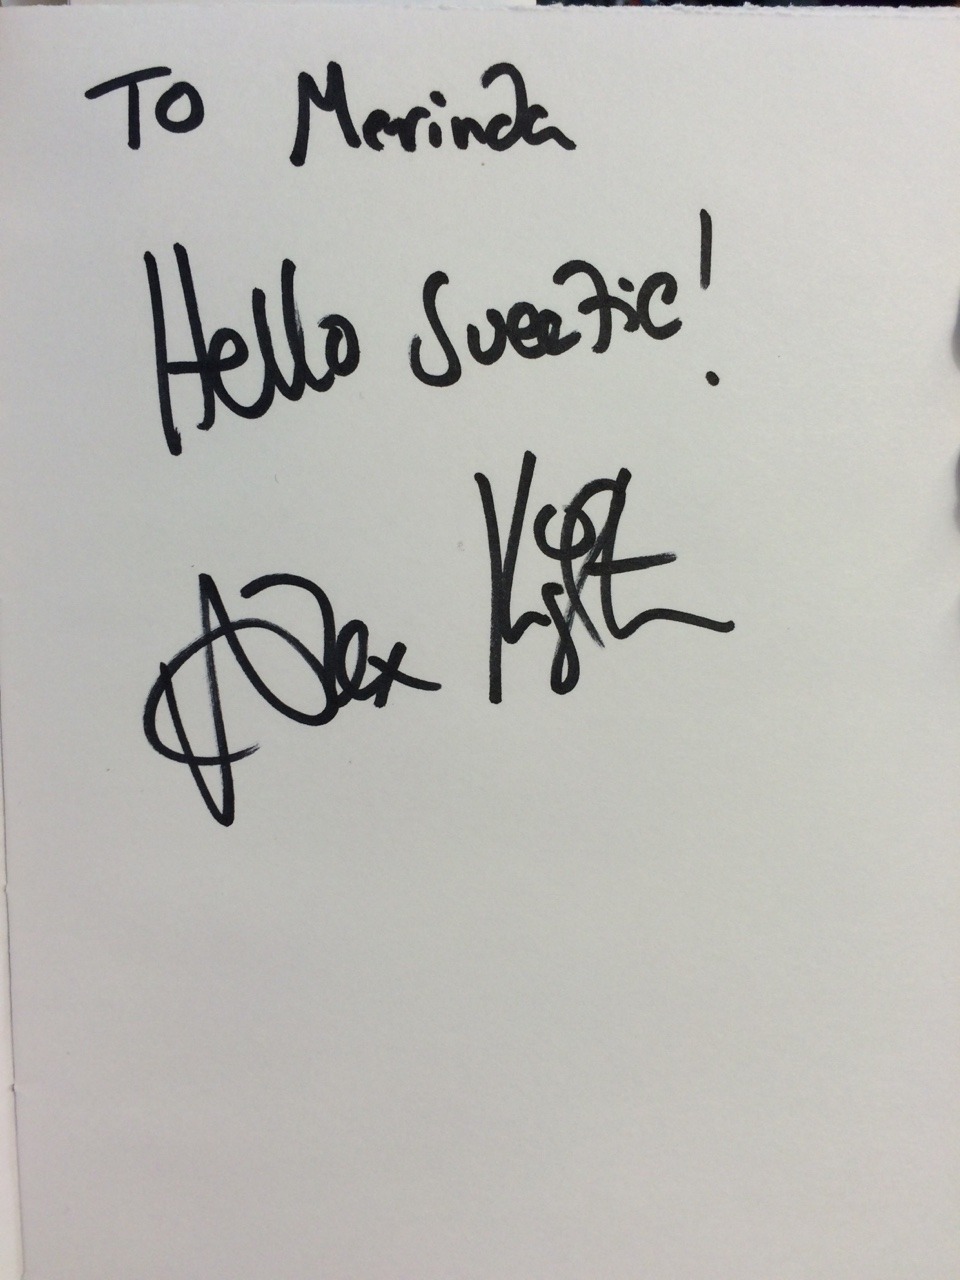 To Merinda
Hello Sweetie!
Alex Kingston